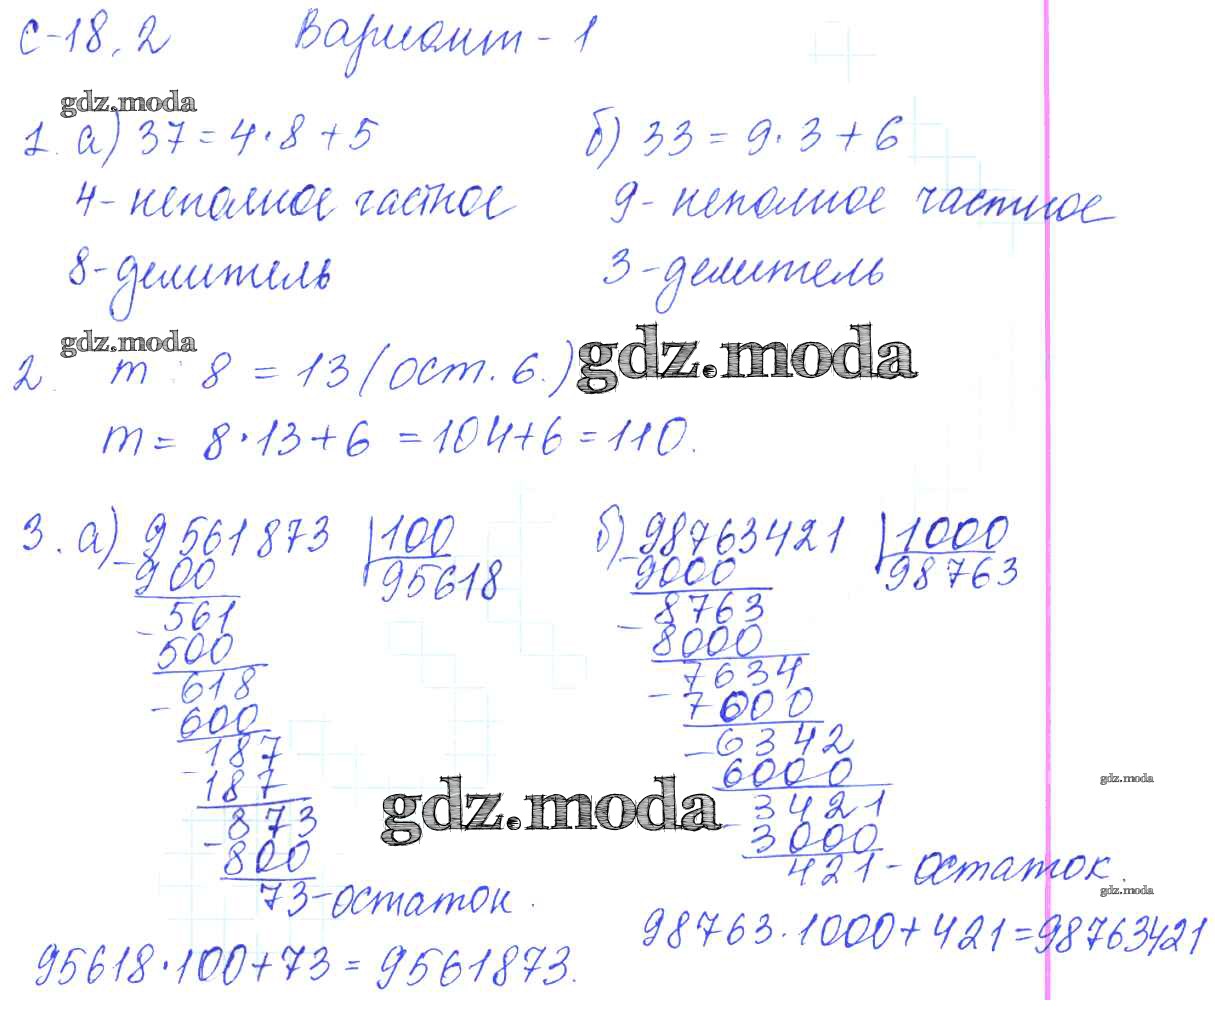 С-18.2 Вариант - 1
gdz.moda
1. а) 37 = 4·8 + 5
4- неполное частное
8- делитель
б) 33 = 9·3 + 6
9- неполное частное
3 - делитель
gdz.moda
gdz.moda
2. m : 8 = 13 (ост. 6.)
m = 8·13 + 6 = 104 + 6 = 110.
3. а) 9561873 | 100
95618
- 900
561
- 500
618
- 600
187
- 187
873
- 800
73 - остаток.
95618·100 + 73 = 9561873.
б) 98763421 | 1000
98763
- 9000
8763
- 8000
7634
- 7000
6342
- 6000
3421
- 3000
421 - остаток.
98763·1000 + 421 = 98763421
gdz.moda
gdz.moda
gdz.moda